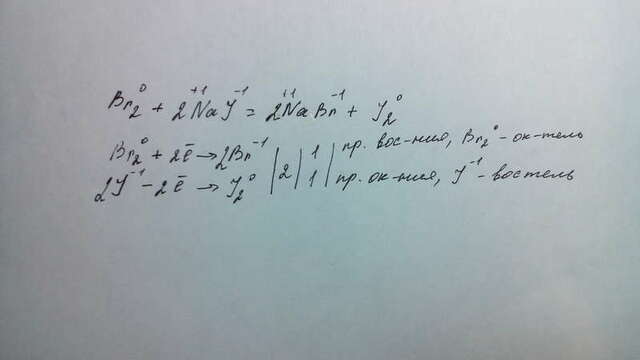 Br₂⁰ + 2Na⁺¹J⁻¹ = 2Na⁺¹Br⁻¹ + J₂⁰
Br₂⁰ + 2ē → 2Br⁻¹ | 2 | 1 | пр. вос-ния, Br₂⁰ - ок-тель
2J⁻¹ - 2ē → J₂⁰ | 1 | пр. ок-ния, J⁻¹ - востель